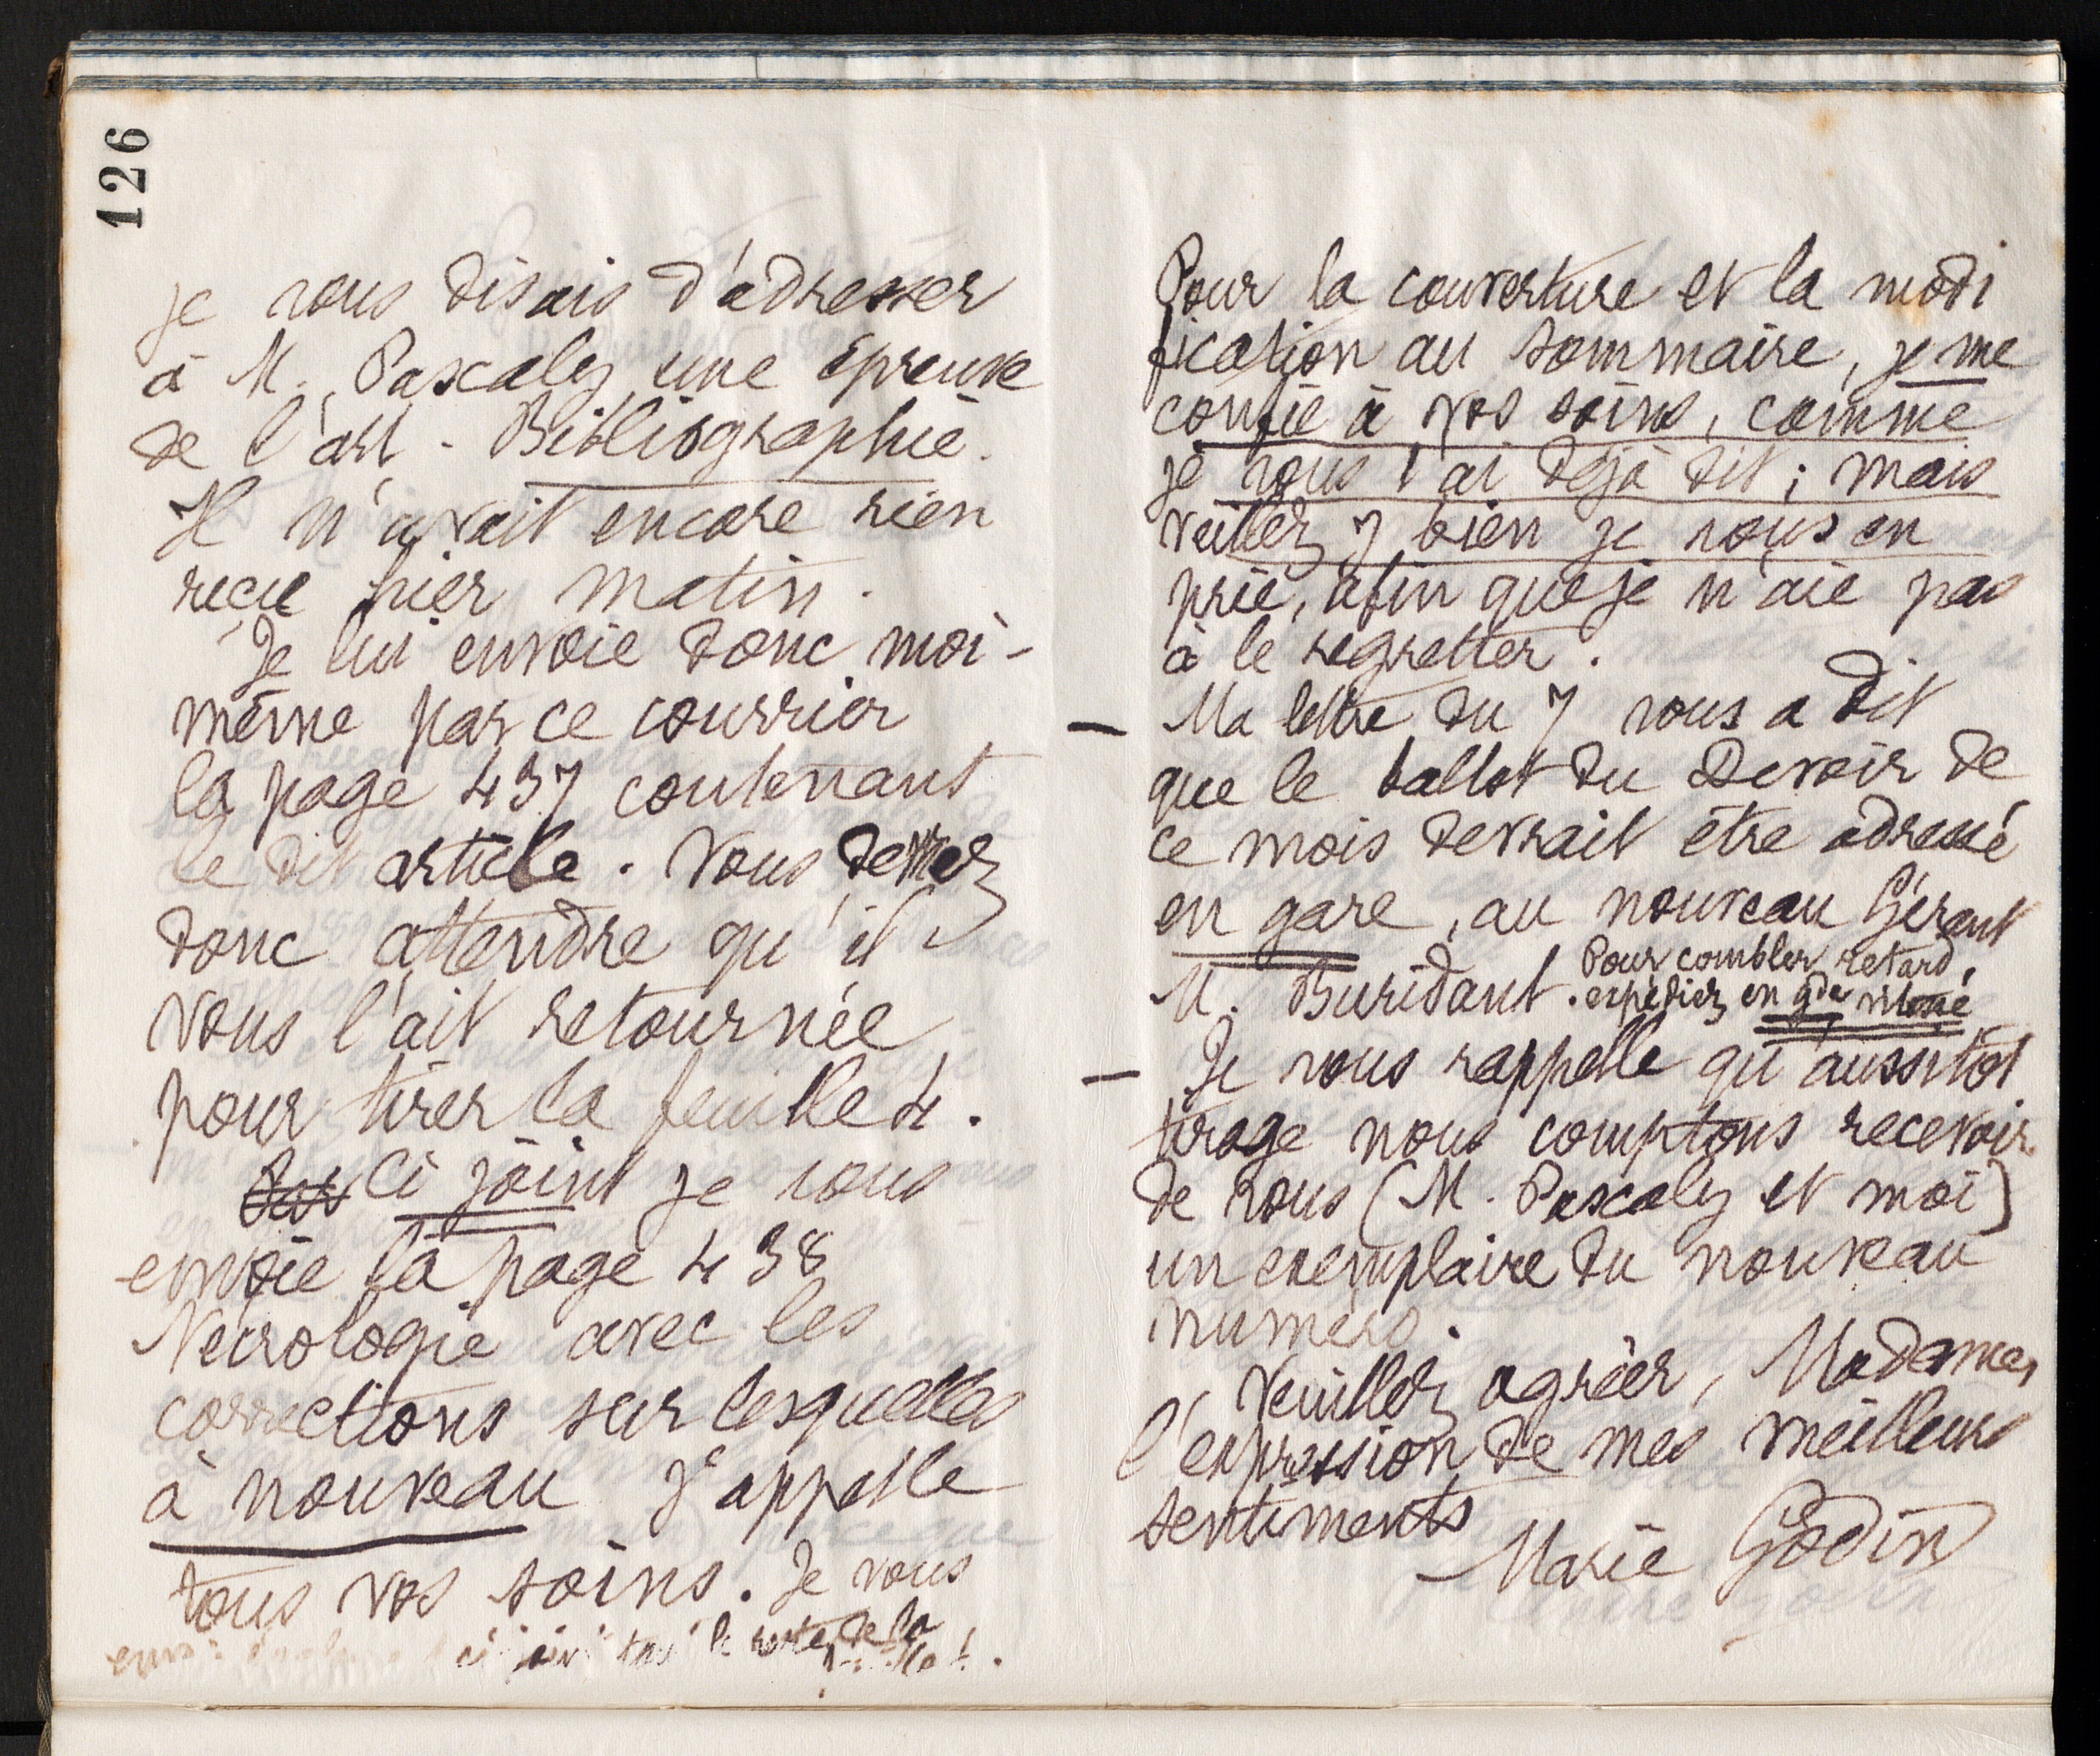 126
je vous disais d'adresser
à M. Pascaly une épreuve
de l'art. Bibliographie.
Il n'avait encore rien
reçu hier matin.
Je lui envoie donc moi-
même par ce courrier
la page 437 contenant
le dit article. Vous devrez
donc attendre qu'il
vous l'ait retournée
pour tirer la feuille 4.
Ci joint je vous
envoie la page 438
Nécrologie avec les
corrections sur lesquelles
à nouveau j'appelle
tous vos soins. Je vous
ci joint tout le reste de la
Pour la couverture et la modi
fication au sommaire, je me
confie à vos soins, comme
je vous l'ai déjà dit; mais
veillez y bien je vous en
prie, afin que je n'aie pas
à le regretter.
— Ma lettre du 7 vous a dit
que le ballot du Devoir de
ce mois devrait être adressé
en gare, au nouveau Gérant
M. Buridant. Pour combler retard,
expédiez en gde vitesse
— Je vous rappelle qu'aussitôt
tirage nous comptons recevoir
de vous (M. Pascaly et moi)
un exemplaire du nouveau
numéro.
Veuillez agréer, Madame,
l'expression de mes meilleurs
sentiments
Marie Godin